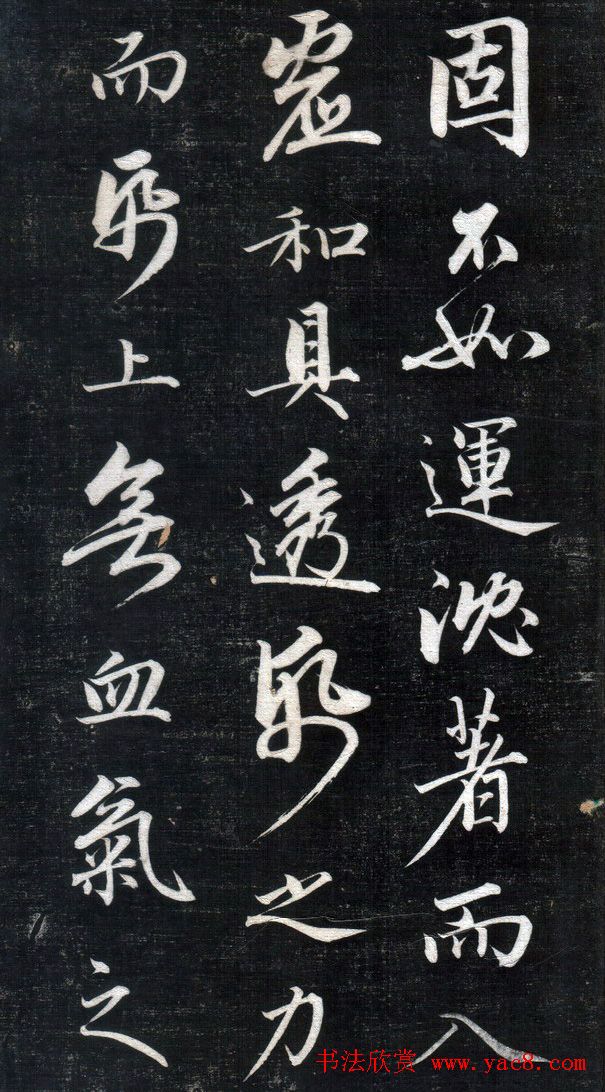 固不如運沈著而入
虛和具透紙之力
而紙上無血氣之
书法欣赏 www.yac8.com